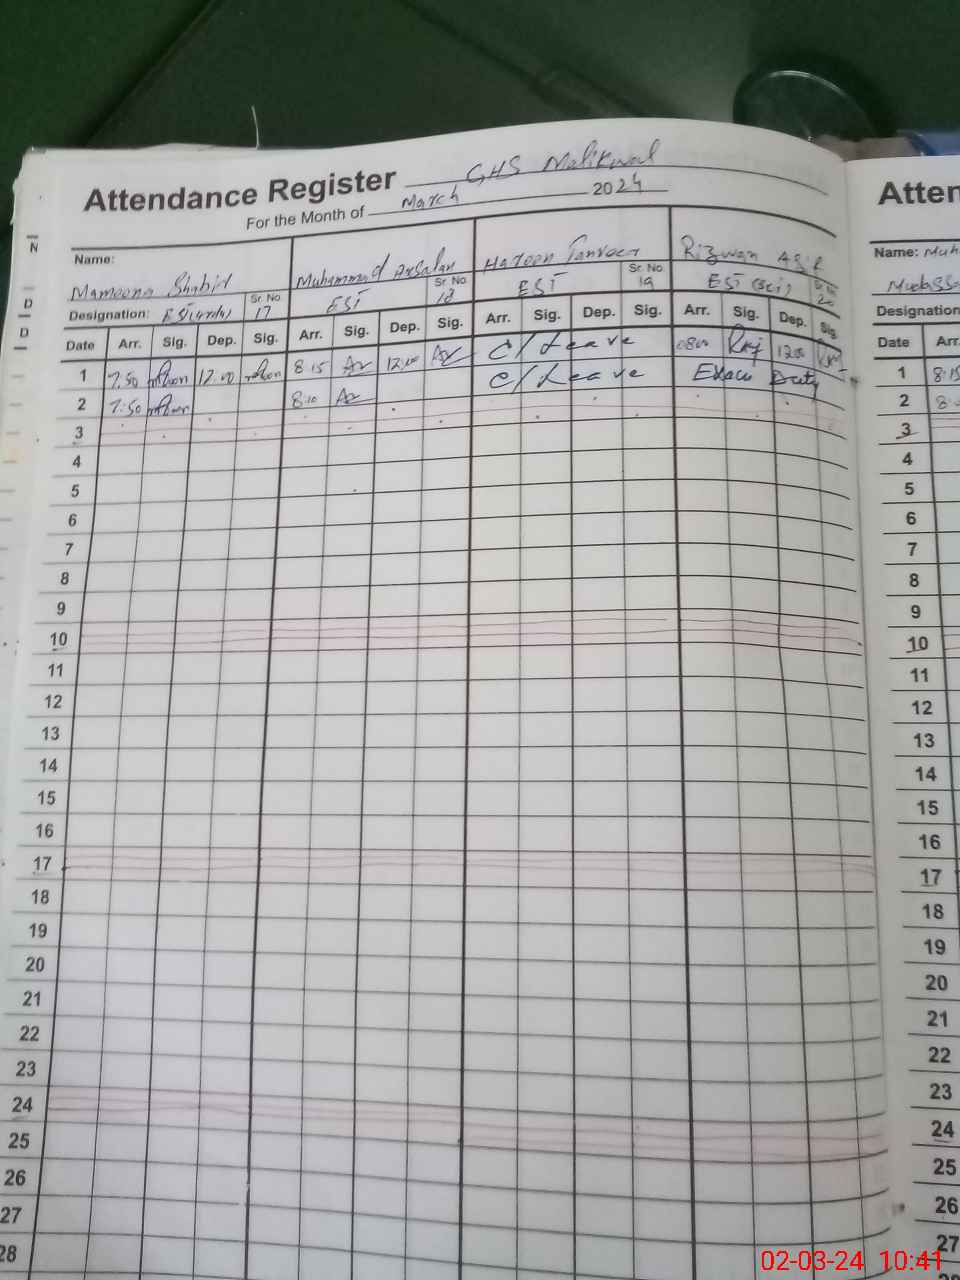 Attendance Register GHS Malikwal
For the Month of March 2024
Name: Mamoona Shahid
Muhammad Arsalan
Haroon Tanveer
Rizwan Asif
Designation: EST(urdu) Sr. No 17
EST Sr. No 18
EST Sr. No 19
EST (Sci) 20
Date Arr. Sig. Dep. Sig. Arr. Sig. Dep. Sig. Arr. Sig. Dep. Sig. Arr. Sig. Dep. Sig.
1 7:50 12:00 8:15 12:00 C/Leave 0800 1200
2 7:50 8:10 C/Leave Exam Duty
3
4
5
6
7
8
9
10
11
12
13
14
15
16
17
18
19
20
21
22
23
24
25
26
27
28
Atten
Name: Muh
Mudass
Designation
Date Arr.
1 8:15
2
3
4
5
6
7
8
9
10
11
12
13
14
15
16
17
18
19
20
21
22
23
24
25
26
27
N
D
D
02-03-24 10:41